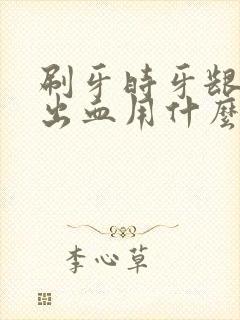 刷牙时牙龈
出血用什麼
李心草